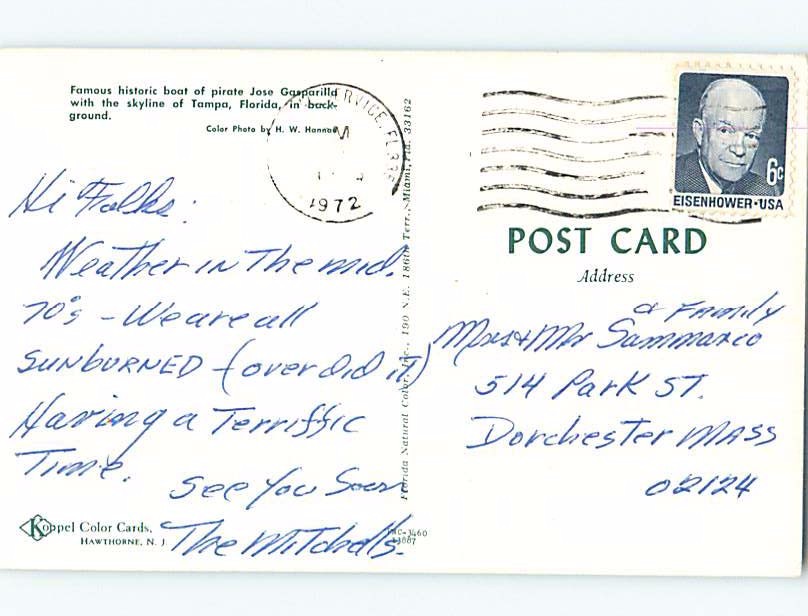 Famous historic boat of pirate Jose Gasparilla
with the skyline of Tampa, Florida, in back-
ground.
Color Photo by H. W. Hannau
Hi Folks:
Weather in The mid.
70's - We are all
SUNBURNED - (over did it)
Having a Terriffic
Time.
See You Soon
The Mitchells.
Koppel Color Cards,
HAWTHORNE, N. J.
Florida Natural Color, Inc., 190 N.E. 186th Terr., Miami, Fla. 33162
RVICE, FL
1972
6c
EISENHOWER·USA
POST CARD
Address
& Family
Mrs & Mr Sammarco
514 Park ST.
Dorchester Mass
02124